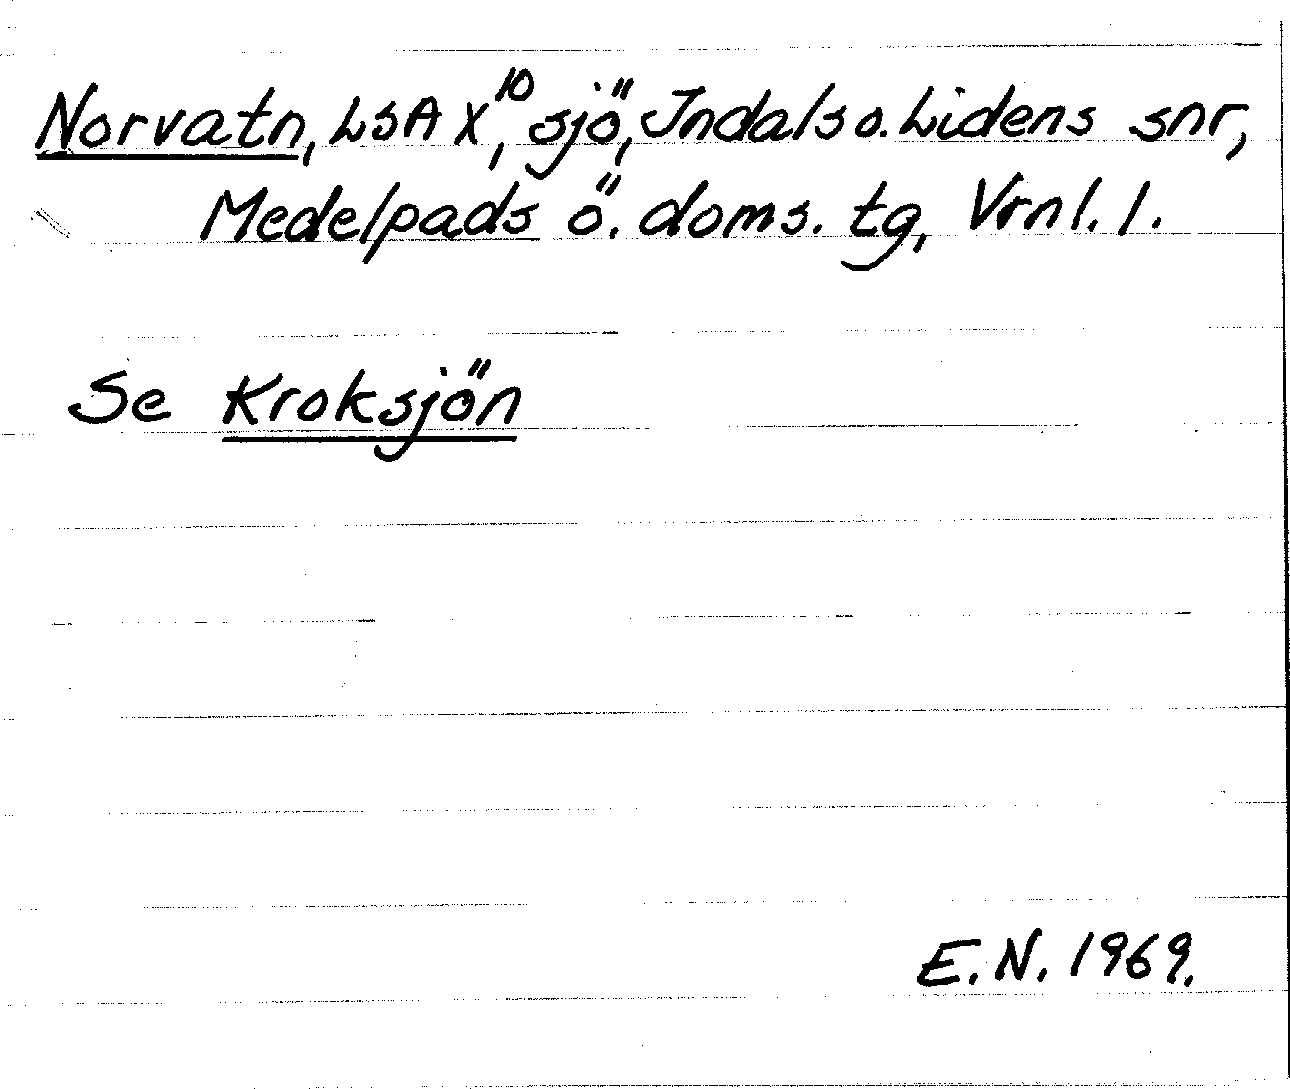 Norvatn, LSA X¹⁰, sjö, Indals o. Lidens snr,
Medelpads ö. doms. tg, Vrnl. l.
Se Kroksjön
E.N. 1969.